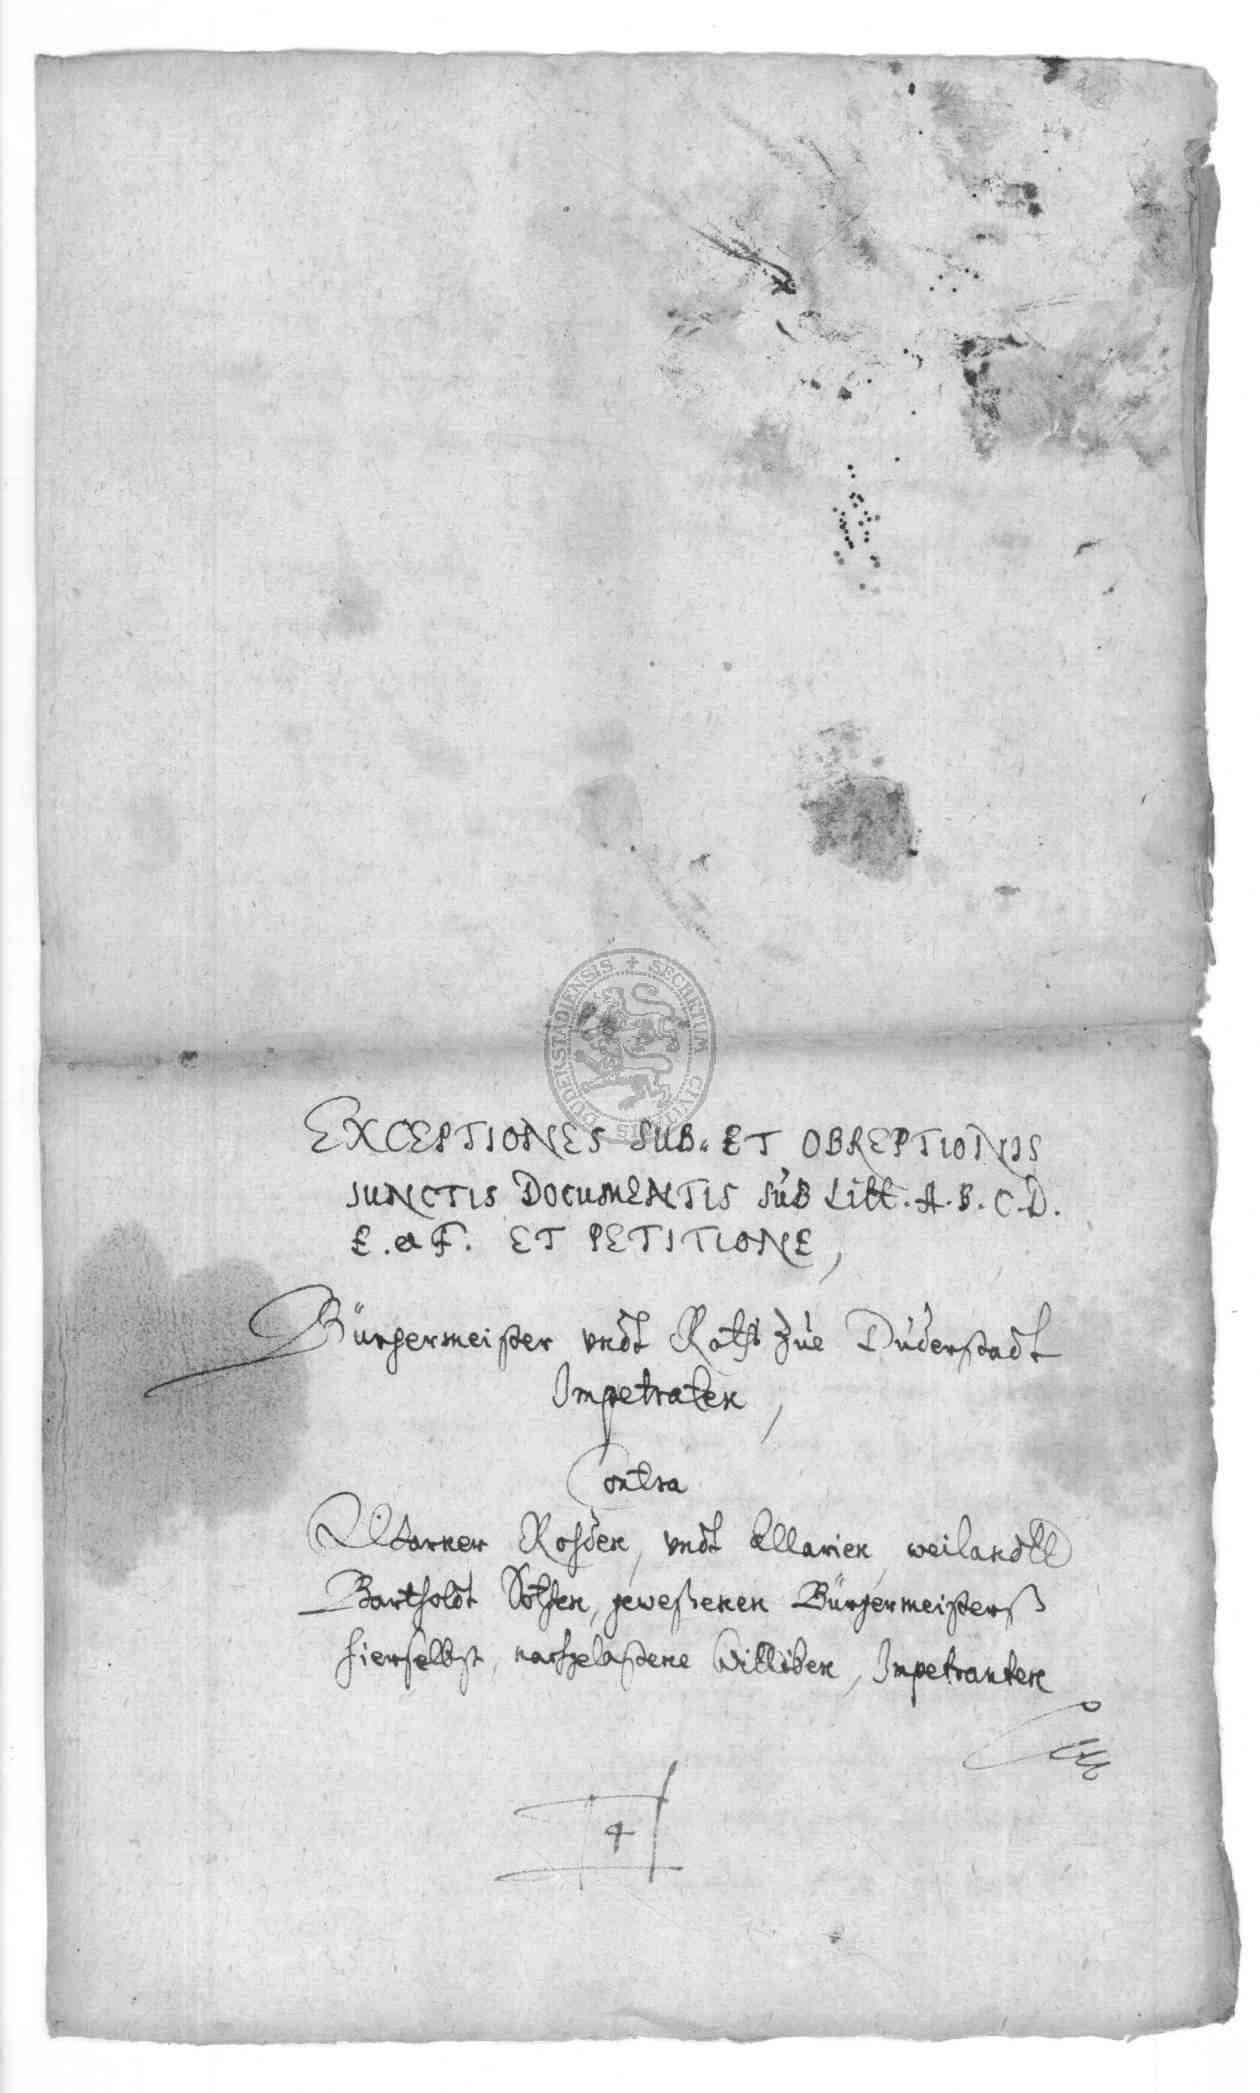 EXCEPTIONES SUB- ET OBREPTIONIS
JUNCTIS DOCUMENTIS SUB Litt. A. B. C. D.
E. et F. ET PETITIONE,
Bürgermeister vndt Raths zue Duderstadt
Impetraten,
Contra
Warner Rohden, vndt Marien, weilandtt
Bartholdt gewesenen Bürgermeisterß
hierselbst, nachgelaßene Wittiben, Impetranten
4
SECRETUM CIVITATIS DUDERSTADIENSIS